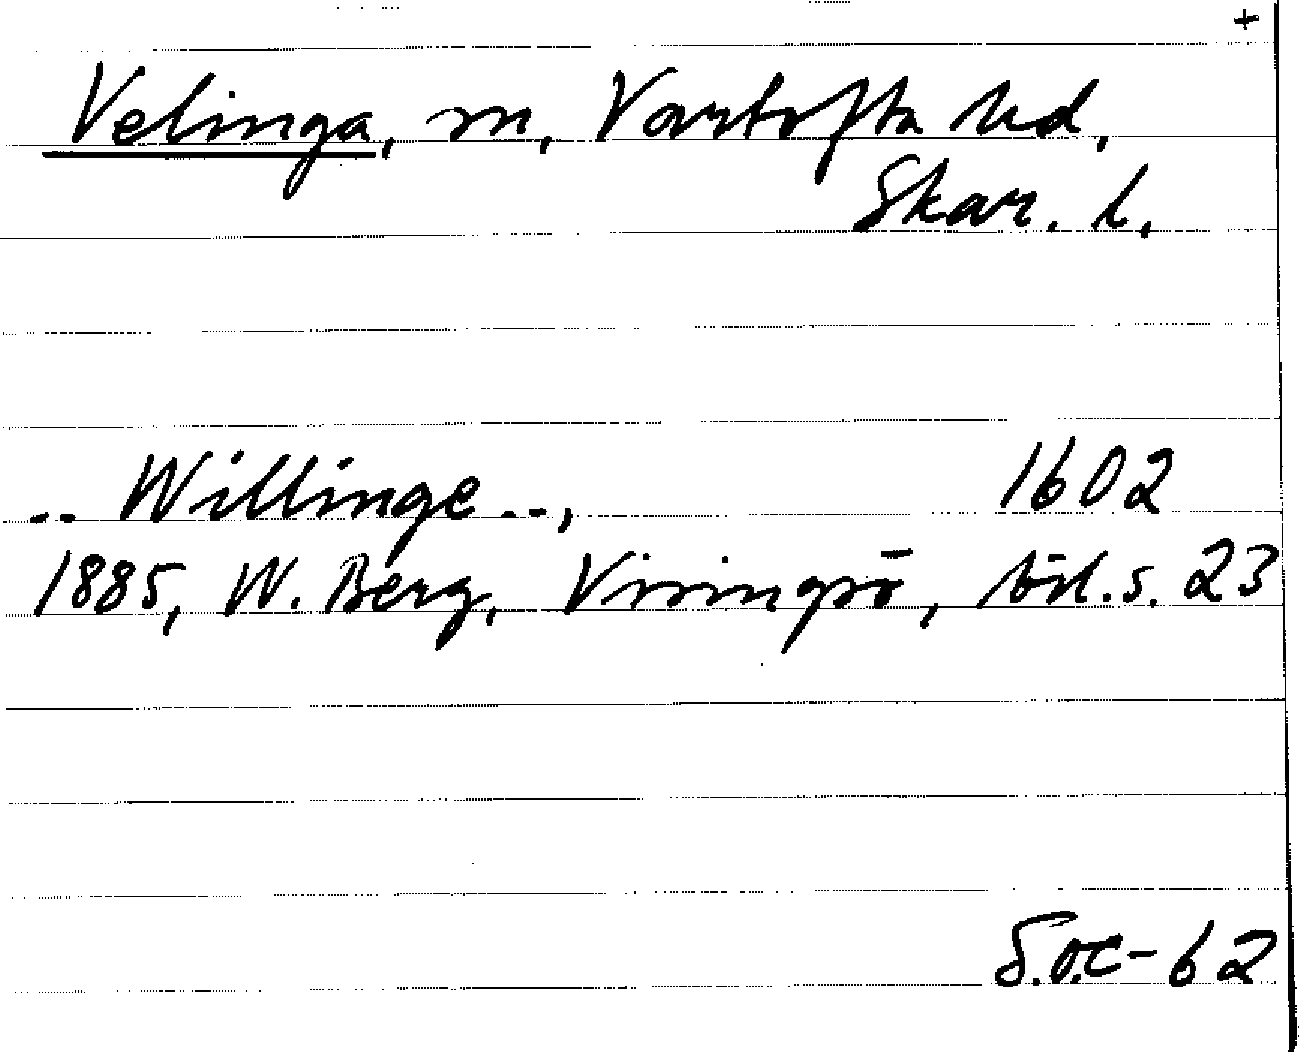 +
Velinga, sn, Vartofta hd,
Skar. l.
-- Willinge --, 1602
1885, W. Berg, Visingsö, bil. s. 23
S.O.C-62